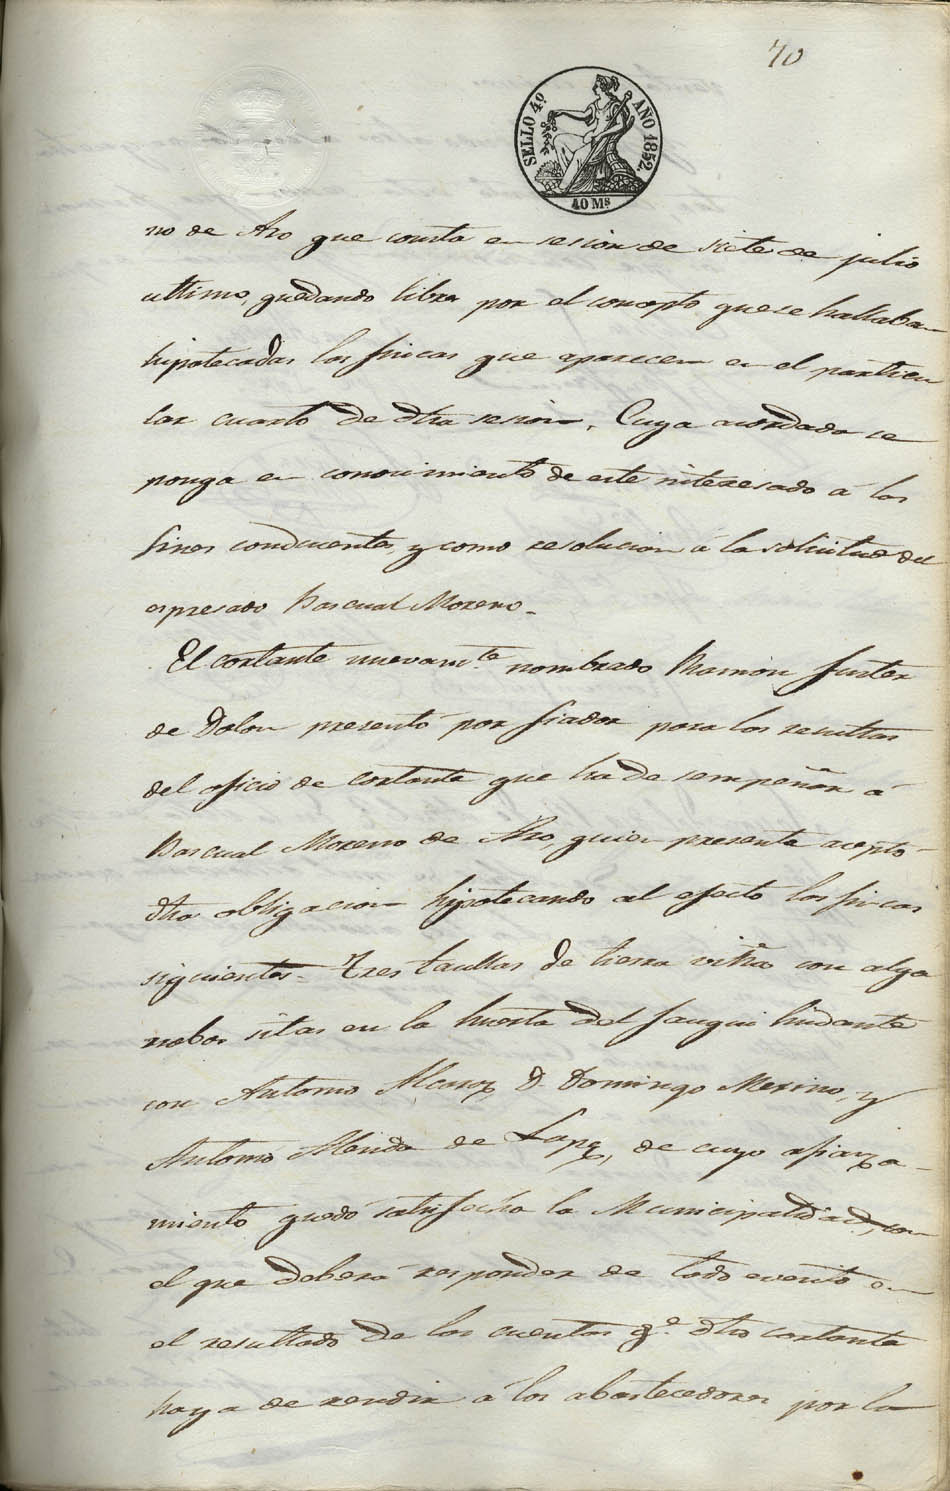 70
SELLO 4º AÑO 1852.
40 Ms
no de Aro que consta en sesion de siete de julio
ultimo, quedando libre por el concepto que se hallaban
hipotecadas las fincas que aparecen en el particu
lar cuarto de dha sesion. Cuyo acordado se
ponga en conocimiento de este interesado á los
fines conducentes, y como resolucion á la solicitud del
espresado Pascual Moreno.
El cortante nuevamte nombrado Ramon Fuster
de Dolon presentó por fiador para las resultas
del oficio de cortante que ha de sempeñar á
Pascual Moreno de Aro, quien presente acepto
dha obligacion hipotecando al efecto las fincas
siguientes. Tres taullas de tierra viña con alga
robos sitas en la huerta del Fauqui lindante
con Antonio D. Domingo Merino, y
Antonio de Lopez, de cuyo afianza-
miento quedó satisfecha la Municipalidad, con
el que deberá responder de todo evento en
el resultado de las cuentas qe. dho cortante
haya de rendir á los abastecedores por la